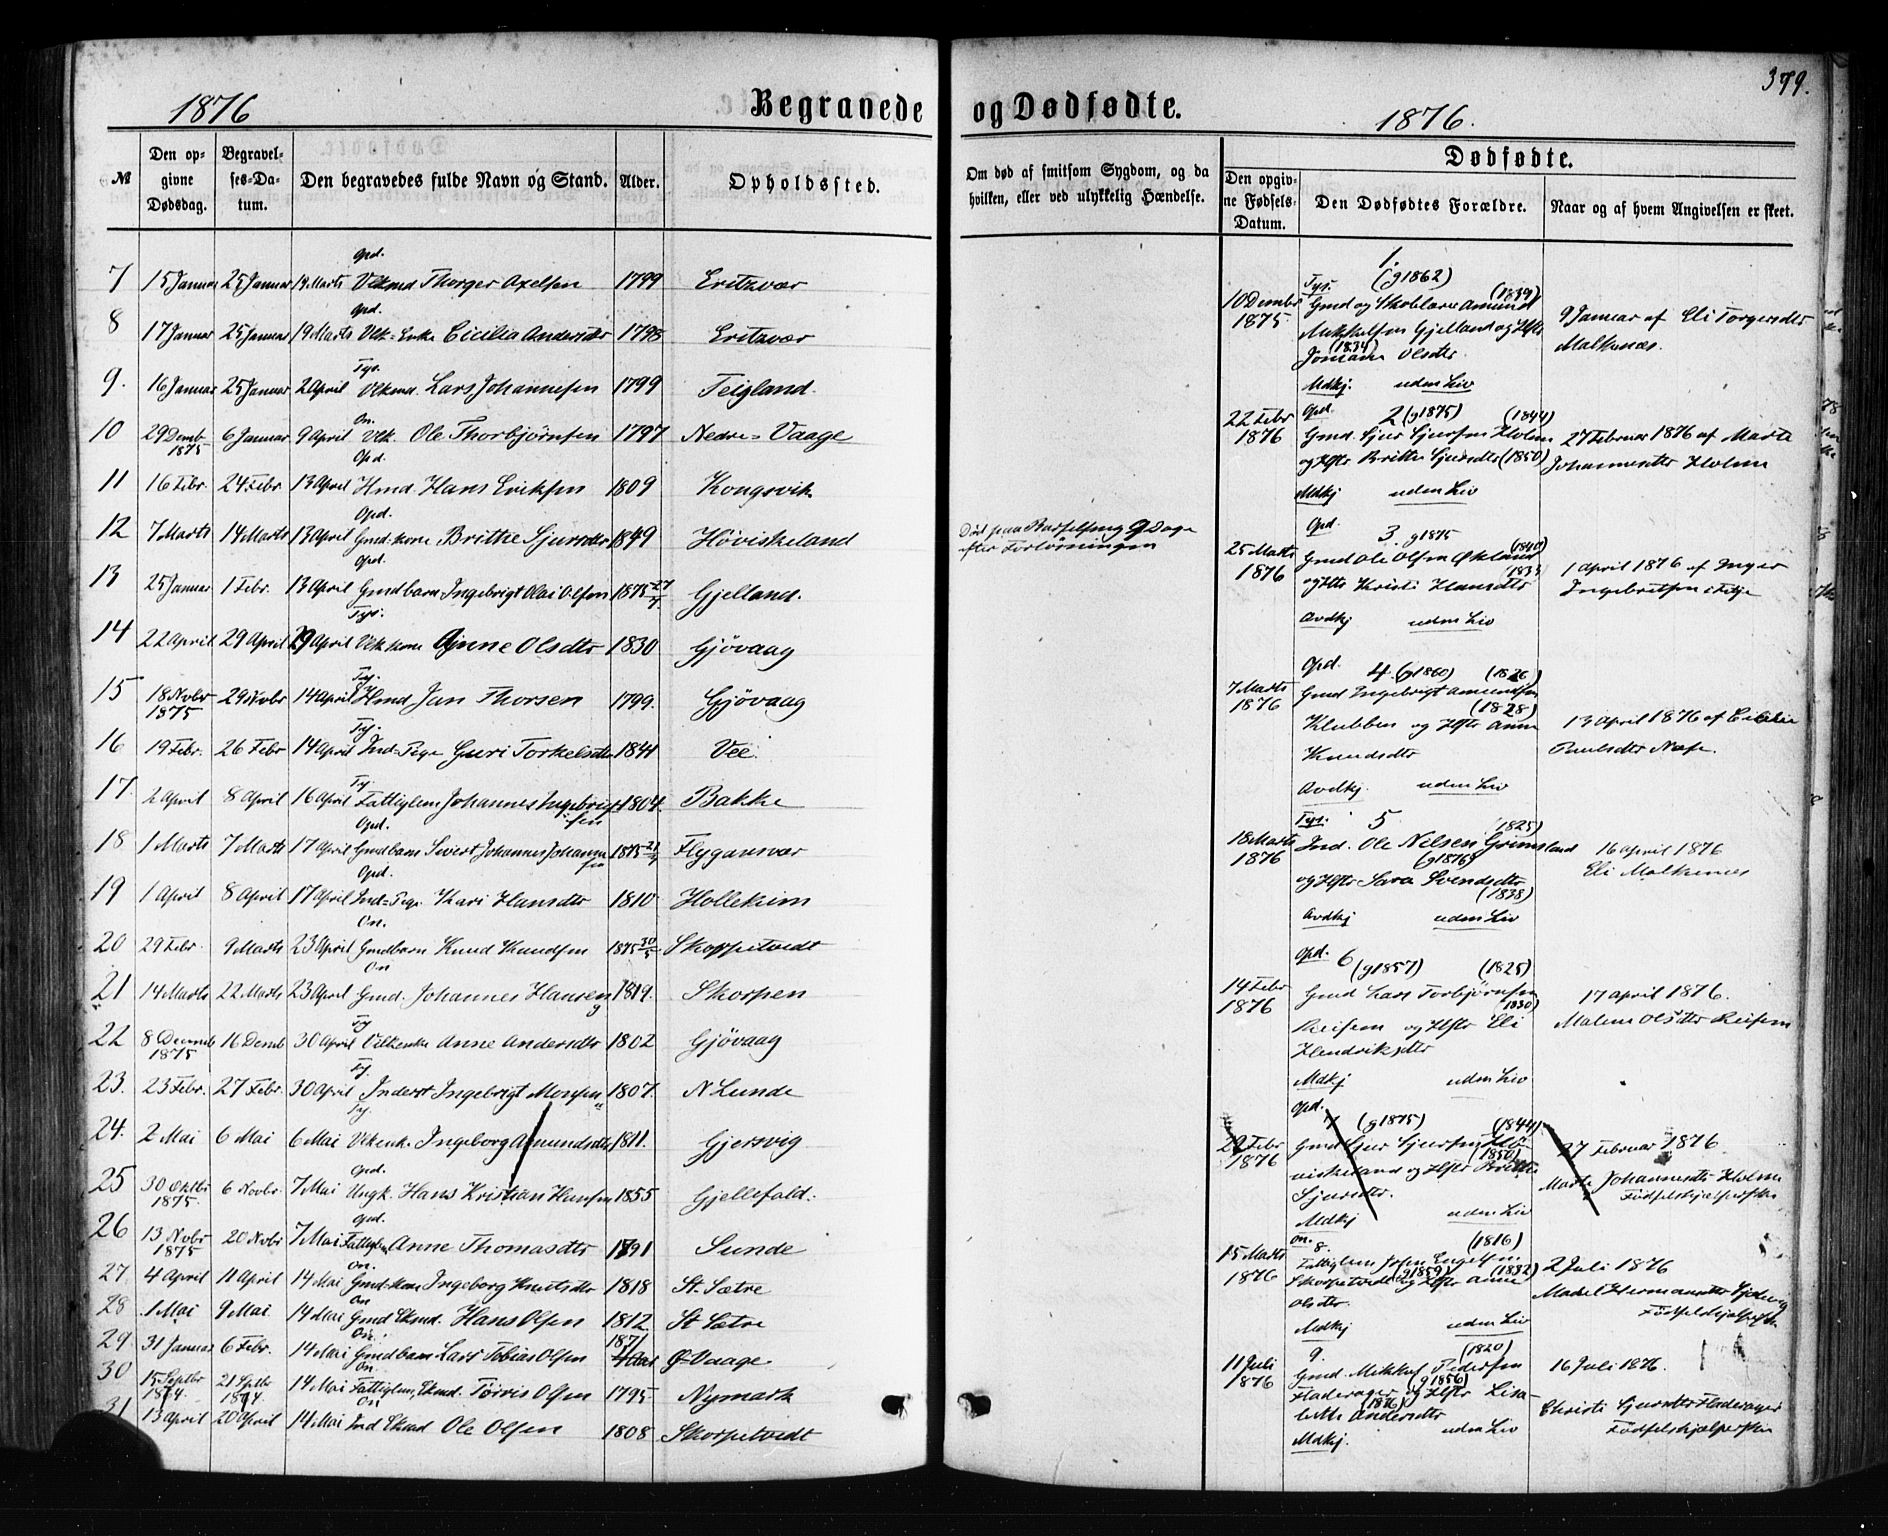 379.
1876 Begravede og Dødfødte. 1876.
№ Den opgivne Dødsdag. Begravelses-Datum. Den begravedes fulde Navn og Stand. Alder. Opholdssted.
Om død af smitsom Sygdom, og da hvilken, eller ved ulykkelig Hændelse.
Dødfødte.
Den opgivne Fødsels-Datum. Den Dødfødtes Forældre. Naar og af hvem Angivelsen er skeet.
Opd.
7 15 Januar 25 Januar 19 Marts Vlkmd Thorger Axelsen 1799 Eritzvær
Opd.
8 17 Januar 25 Januar 19 Marts Vlk. Enke Cicilia Andersdtr 1798 Eritzvær
Tys.
9. 16 Januar 25 Januar 2 April Vlkmd. Lars Johannesen 1799 Teigland.
On.
10 29 Demb 1875 6 Januar 9 April Vlk. Ole Thorbjørnsen 1797 Nedre-Vaage
Opd.
11 16 Febr. 24 Febr 13 April Hmd. Hans Eriksen 1809 Kongsvik
Opd.
12 7 Marts 14 Marts 13 April Gmd.kone Brithe Sjursdtr 1849 Høviskeland
Død paa Barselseng 9 Dage
efter Forløsningen
Opd.
13 25 Januar 1 Febr. 13 April Gmdbarn Ingebrigt Olai Olsen 1875 27/4 Gjelland.
Tys.
14 22 April 29 April 29 April Vlk kone Anne Olsdtr 1830 Gjøvaag
Tj.
15 18 Novbr 1875 29 Novbr 14 April Hmd Jan Thorsen 1799. Gjøvaag
Tj
16 19 Febr. 26 Febr 14 April Ind-Pige Guri Torkelsdtr 1844 Vee.
Tj
17. 2 April 8 April 16 April Fattiglem Johannes Ingebrigtsen 1804. Bakke
Opd.
18 1 Marts 7 Marts 17 April Gmdbarn Sivert Johannes Johannsen 1875 Flygansvær
Opd.
19 1 April 8 April 17 April Ind-Pige Kari Hansdtr 1810 Hollekim
On.
20 29 Febr. 9 Marts 23 April Gmdbarn Knud Knudsen 1875 30/5 Skorpetvedt
On
21 14 Marts 22 Marts 23 April Gmd. Johannes Hansen 1819. Skorpen
Tj
22 8 Decemb 1875 16 Demb 30 April Vlkenke Anne Andersdtr 1802 Gjøvaag
Tj.
23. 23 Febr. 27 Febr. 30 April Inderst Ingebrigt Monsen 1807. N Lunde
Tj.
24. 2 Mai 6 Mai 6 Mai Vlkenk. Ingeborg Amundsdtr 1811. Gjersvig
Opd.
25 30 Oktbr 1875. 6 Novbr. 7 Mai Ungk. Hans Kristian Hansen 1855 Gjellefald.
Opd.
26 13 Novbr 1875 20 Novbr 7 Mai Fattiglem Anne Thomasdtr 1791 Sunde
On.
27. 4 April 11 April 14 Mai Gmd-kone Ingeborg Knutsdtr 1818 St. Sætre
On
28 1 Mai 9 Mai. 14 Mai Gmd Ekmd. Hans Olsen 1812 St Sætre
On.
29. 31 Januar 6 Febr. 14 Mai Gmdbarn Lars Tobias Olsen 1871 Ø-Vaage
On.
30 15 Septbr 1874. 21 Septbr 1874. 14 Mai Fattiglem, Ekmd. Torris Olsen 1795 Nymark
On
31 13 April 20 April 14 Mai Ind Ekmd Ole Olsen 1808 Skorpetvedt
1.
Tys. (g1862)
10 Dembr 1875 Gmd og Skolelærer Amund (1839)
Mikkelsen Gjelland og Hstr
(1834)
Johanne Olsdtr.
Mdkj. uden Liv
9 Januar af Eli Torgersdtr
Malkenæs.
Opd. 2 (g1875) (1844)
22 Febr 1876 Gmd. Sjur Sjursen Holm
og Hstr Brithe Sjursdtr (1850)
Mdkj uden Liv
27 Februar 1876 af Marte
Johannesdtr Holm
Opd 3. g1875
25 Marts 1876 Gmd Ole Olsen Økland (1840)
og Hstr Kristi Hansdtr
Avdkj uden Liv
1 April 1876 af Inger
Ingebrigtsen i Fitje
Opd. 4. (g1860) (1826)
7 Marts 1876 Gmd Ingebrigt Amundsen
(1828)
Klubben og Hstr Anne
Knudsdtr
Avdkj. uden Liv
13 April 1876 af Cicilie
Paulsdtr Næse.
Tys. 5 1825)
18 Marts 1876 Ind. Ole Nilsen Grimsland
(g1876)
og Hstr Sara Svendsdtr
(1838)
Avdkj uden Liv
16 April 1876
Eli Malkenes
Opd. 6
(g1857) (1825)
14 Febr 1876 Gmd Lars Torbjørnsen
1830)
Reisem og Hstr Eli
Hendriksdtr
Mdkj uden Liv
17 April 1876.
Malene Olsdtr Reisem
Opd.
7 (g1875) (1844)
22 Febr 1876 Gmd Sjur Sjursen Høviskeland og Hstr Brithe
(1850)
Sjursdtr.
Mdkj uden Liv
27 Februar 1876
Marte Johannesdtr Holm
Fødselshjælperske
On. 8. (1816)
15 Marts 1876 Fattiglem Josen Engelsen
(g1859) (1832)
Skorpetvedt og Hstr Anne
Olsdtr.
Mdkj uden Liv
2 Juli 1876
Madel Hermansdtr
Fødselshjælperske
9. (1820)
11 Juli 1876 Gmd. Mikkel Pedersen
(g1856)
Fladerager og Hstr Lisabethe Andersdtr
Mdkj. uden Liv
16 Juli 1876.
Christi Sjursdtr Fladerager
Fødselshjælpersken